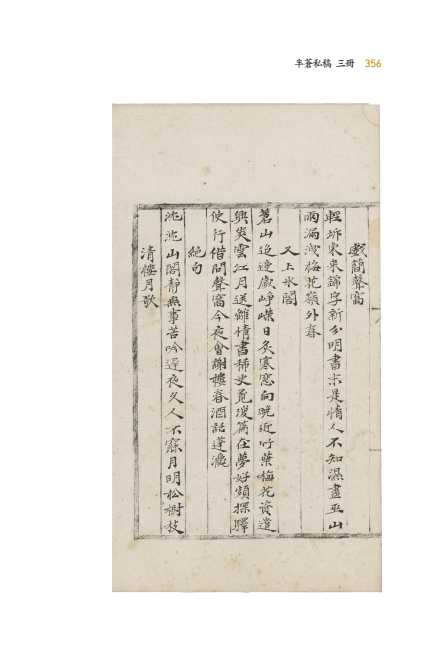 半蒼私稿 三冊 356
戱簡聲窩
輕家来錦字新分明書末是情人不知濕盡巫山
雨漏洩梅花嶺外春
又上水閣
蒼山迢遞歲崢嶸日炙寒窓向晚近竹葉梅花資遣
興雲江月送離情書稀覓篇在夢好頻探驛
使行借問聲窩今夜會謝樓春酒話蓬瀛
絶句
沈沈山閣靜無事苦吟遲夜久人不寐月明松樹枝
清樓月歌